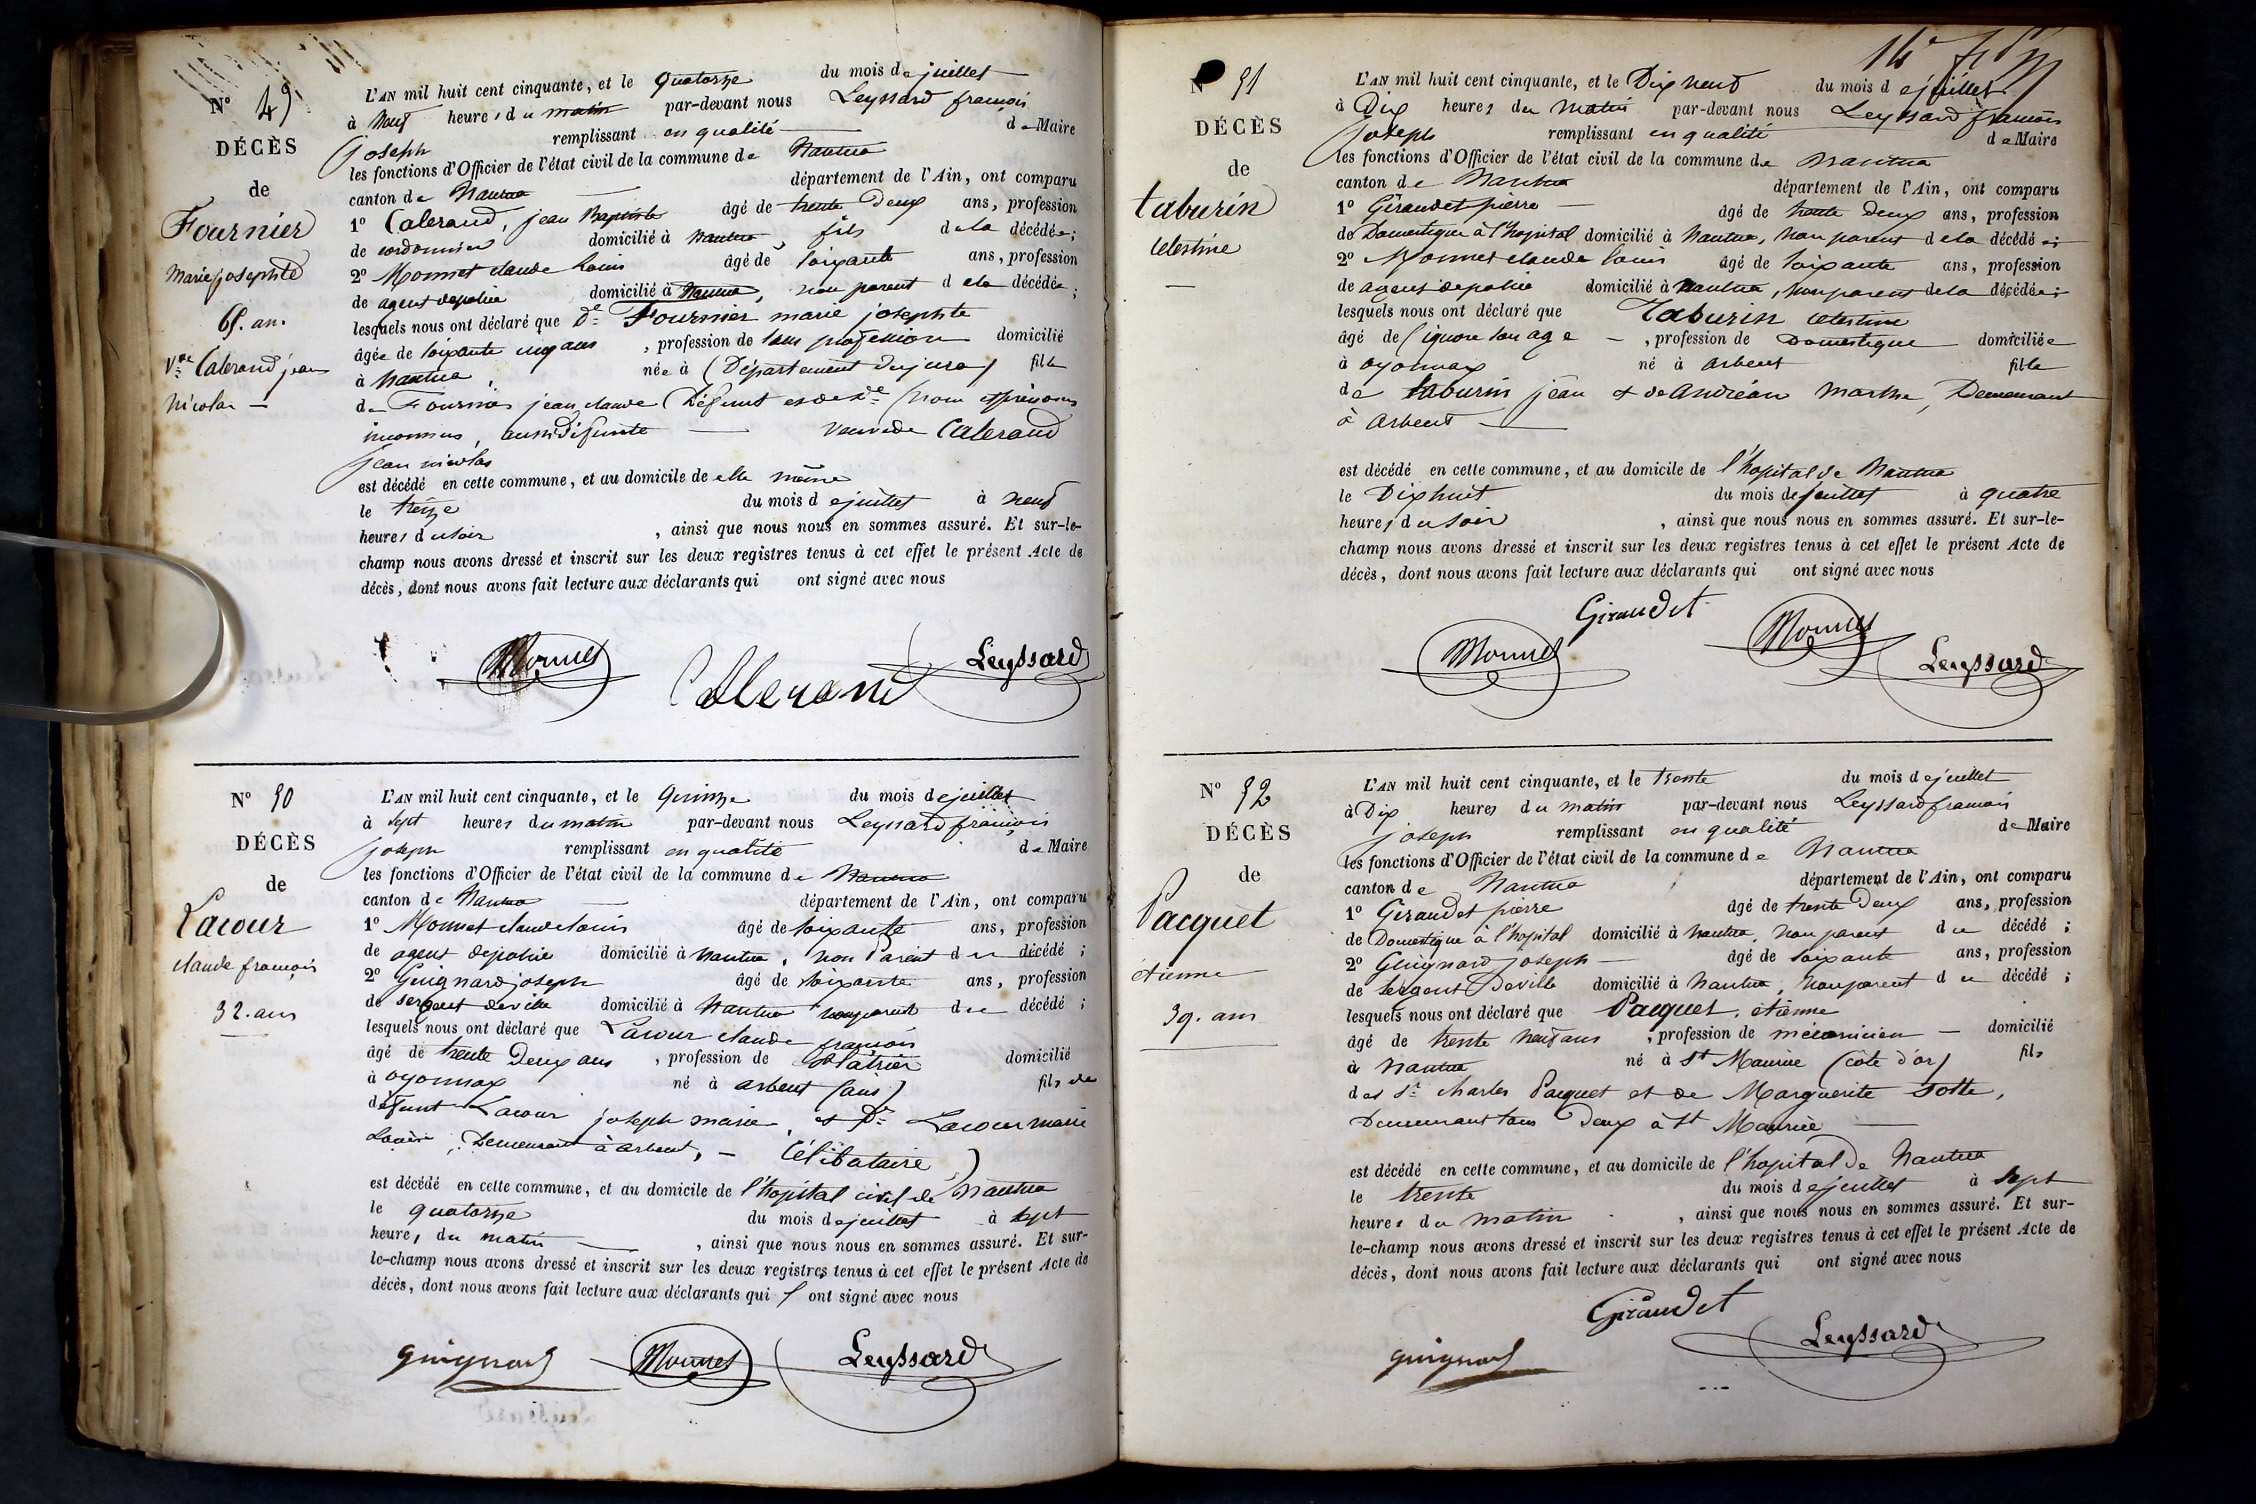 N° 49
DÉCÈS
de
Fournier
Marie josephte
65. ans
Vve Caberand jean
Nicolas —
L'AN mil huit cent cinquante, et le quatorze du mois de juillet
à Neuf heures du matin par-devant nous Leyssard françois
joseph remplissant en qualité de Maire
les fonctions d'Officier de l'état civil de la commune de Nantua
canton de Nantua département de l'Ain, ont comparu
1° Caberand, jean Baptiste âgé de trente Deux ans, profession
de cordonnier domicilié à Nantua, fils de la décédée;
2° Monnet claude Louis âgé de soixante ans, profession
de agent de police domicilié à Nantua, non parent de la décédée;
lesquels nous ont déclaré que De Fournier marie josephte
âgée de soixante cinq ans, profession de sans profession domicilié
à Nantua, née à (Département du jura) fille
de Fournier jean claude Défunt et de De (nom et prénoms
inconnus, aussi Défunte — veuve de Caberand
jean nicolas
est décédé en cette commune, et au domicile de elle même
le treize du mois de juillet à neuf
heures du soir, ainsi que nous nous en sommes assuré. Et sur-le-
champ nous avons dressé et inscrit sur les deux registres tenus à cet effet le présent Acte de
décès, dont nous avons fait lecture aux déclarants qui ont signé avec nous
Monnet Leyssard
N° 50
DÉCÈS
de
Lacour
claude françois
32. ans
L'AN mil huit cent cinquante, et le Quinze du mois de juillet
à sept heures du matin par-devant nous Leyssard françois
joseph remplissant en qualité de Maire
les fonctions d'Officier de l'état civil de la commune de Nantua
canton de Nantua département de l'Ain, ont comparu
1° Monnet claude Louis âgé de soixante ans, profession
de agent de police domicilié à Nantua, non Parent du décédé;
2° Guignard joseph âgé de soixante ans, profession
de sergent de ville domicilié à Nantua non parent du décédé;
lesquels nous ont déclaré que Lacour claude françois
âgé de trente Deux ans, profession de Platrier domicilié
à oyonnax né à arbent (ain) fils de
défunt Lacour joseph marie, et De Lacour marie
Demeurant à arbent, — Célibataire
est décédé en cette commune, et au domicile de l'hopital civil de Nantua
le quatorze du mois de juillet à sept
heures du matin —, ainsi que nous nous en sommes assuré. Et sur-
le-champ nous avons dressé et inscrit sur les deux registres tenus à cet effet le présent Acte de
décès, dont nous avons fait lecture aux déclarants qui ont signé avec nous
guignard Monnet Leyssard
N° 51
DÉCÈS
de
taburin
celestine
—
L'AN mil huit cent cinquante, et le Dix neuf du mois de juillet
à Dix heures du matin par-devant nous Leyssard françois
joseph remplissant en qualité de Maire
les fonctions d'Officier de l'état civil de la commune de Nantua
canton de Nantua département de l'Ain, ont comparu
1° Giraudet pierre — âgé de trente deux ans, profession
de Domestique à l'hopital domicilié à Nantua, non parent de la décédée;
2° Monnet claude Louis âgé de soixante ans, profession
de agent de police domicilié à Nantua, non parent de la décédée;
lesquels nous ont déclaré que Taburin celestine
âgé de (ignore son age —, profession de Domestique domiciliée
à oyonnax né à arbent fille
de taburin jean & de andréan marthe, Demeurant
à arbent —
est décédé en cette commune, et au domicile de l'hopital de Nantua
le Dix huit du mois de juillet à quatre
heures du soir, ainsi que nous nous en sommes assuré. Et sur-le-
champ nous avons dressé et inscrit sur les deux registres tenus à cet effet le présent Acte de
décès, dont nous avons fait lecture aux déclarants qui ont signé avec nous
Giraudet
Monnet Monnet Leyssard
N° 52
DÉCÈS
de
Pacquet
étienne
39. ans
L'AN mil huit cent cinquante, et le trente du mois de juillet
à Dix heures du matin par-devant nous Leyssard françois
joseph remplissant en qualité de Maire
les fonctions d'Officier de l'état civil de la commune de Nantua
canton de Nantua département de l'Ain, ont comparu
1° Giraudet pierre âgé de trente Deux ans, profession
de Domestique à l'hopital domicilié à Nantua, non parent du décédé;
2° Guignard joseph — âgé de soixante ans, profession
de sergent Deville domicilié à Nantua, non parent du décédé;
lesquels nous ont déclaré que Pacquet, étienne
âgé de trente neuf ans, profession de mécanicien — domicilié
à Nantua né à St Maurice (côte d'or) fils
des Sr. charles Pacquet et de Marguerite Sotte,
Demeurant tous Deux à St Maurice —
est décédé en cette commune, et au domicile de l'hopital de Nantua
le trente du mois de juillet à sept
heures du matin, ainsi que nous nous en sommes assuré. Et sur-
le-champ nous avons dressé et inscrit sur les deux registres tenus à cet effet le présent Acte de
décès, dont nous avons fait lecture aux déclarants qui ont signé avec nous
Giraudet
guignard Leyssard